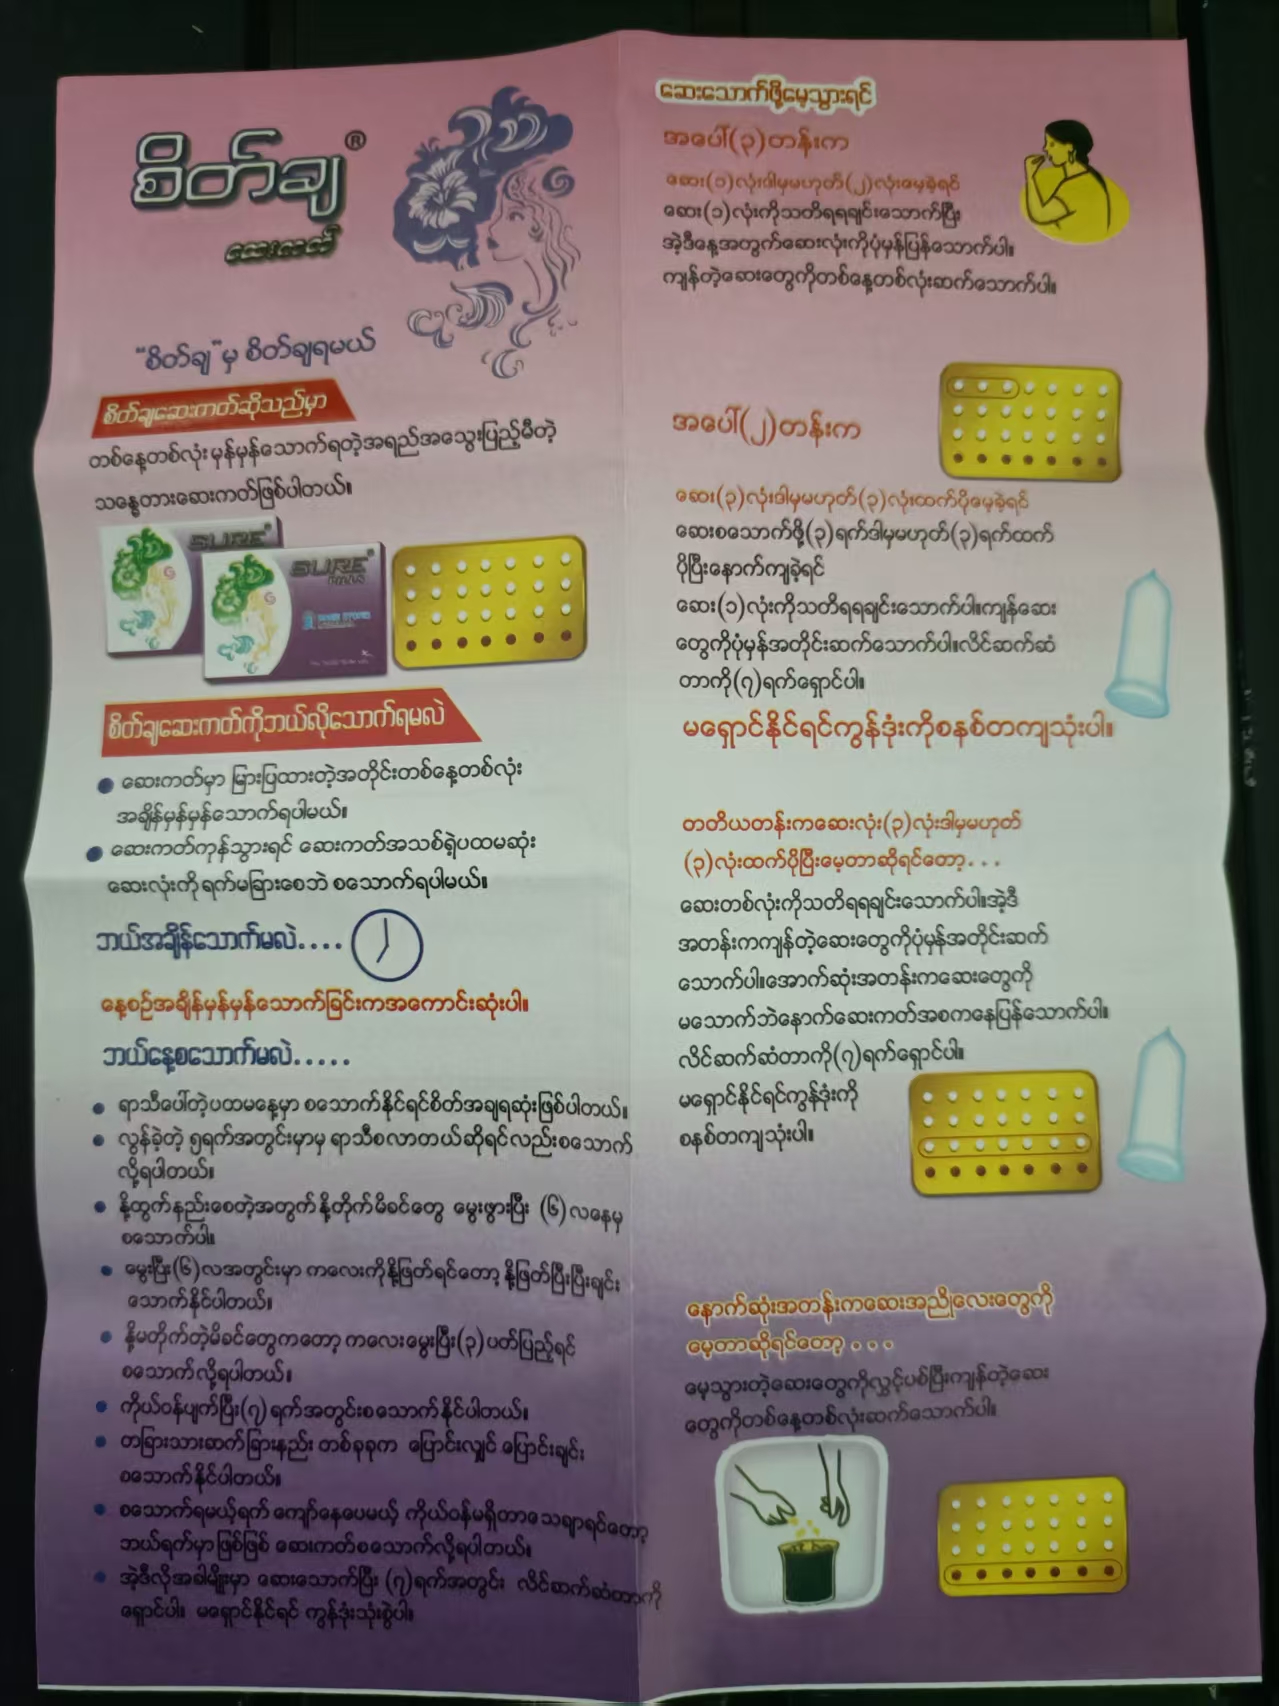 စိတ်ချ®
ဆေးကတ်
“စိတ်ချ”မှ စိတ်ချရမယ်
စိတ်ချဆေးကတ်ဆိုသည်မှာ
တစ်နေ့တစ်လုံး မှန်မှန်သောက်ရတဲ့အရည်အသွေးပြည့်မီတဲ့
သန္ဓေတားဆေးကတ်ဖြစ်ပါတယ်။
SURE
SURE®
PILLS
စိတ်ချဆေးကတ်ကိုဘယ်လိုသောက်ရမလဲ
ဆေးကတ်မှာ မြှားပြထားတဲ့အတိုင်းတစ်နေ့တစ်လုံး
အချိန်မှန်မှန်သောက်ရပါမယ်။
ဆေးကတ်ကုန်သွားရင် ဆေးကတ်အသစ်ရဲ့ပထမဆုံး
ဆေးလုံးကို ရက်မခြားစေဘဲ စသောက်ရပါမယ်။
ဘယ်အချိန်သောက်မလဲ....
နေ့စဉ်အချိန်မှန်မှန်သောက်ခြင်းကအကောင်းဆုံးပါ။
ဘယ်နေ့စသောက်မလဲ.....
ရာသီပေါ်တဲ့ပထမနေ့မှာ စသောက်နိုင်ရင်စိတ်အချရဆုံးဖြစ်ပါတယ်။
လွန်ခဲ့တဲ့ ၅ရက်အတွင်းမှာမှ ရာသီစလာတယ်ဆိုရင်လည်းစသောက်
လို့ရပါတယ်။
နို့ထွက်နည်းစေတဲ့အတွက် နို့တိုက်မိခင်တွေ မွေးဖွားပြီး (၆)လနေမှ
စသောက်ပါ။
မွေးပြီး(၆)လအတွင်းမှာ ကလေးကိုနို့ဖြတ်ရင်တော့ နို့ဖြတ်ပြီးပြီးချင်း
သောက်နိုင်ပါတယ်။
နို့မတိုက်တဲ့မိခင်တွေကတော့ ကလေးမွေးပြီး(၃)ပတ်ပြည့်ရင်
စသောက်လို့ရပါတယ်။
ကိုယ်ဝန်ပျက်ပြီး(၇)ရက်အတွင်းစသောက်နိုင်ပါတယ်။
တခြားသားဆက်ခြားနည်း တစ်ခုခုက ပြောင်းလျှင် ပြောင်းချင်း
စသောက်နိုင်ပါတယ်။
စသောက်ရမယ့်ရက် ကျော်နေပေမယ့် ကိုယ်ဝန်မရှိတာသေချာရင်တော့
ဘယ်ရက်မှာဖြစ်ဖြစ် ဆေးကတ်စသောက်လို့ရပါတယ်။
အဲ့ဒီလိုအခါမျိုးမှာ ဆေးသောက်ပြီး (၇)ရက်အတွင်း လိင်ဆက်ဆံတာကို
ရှောင်ပါ။ မရှောင်နိုင်ရင် ကွန်ဒုံးသုံးစွဲပါ။
ဆေးသောက်ဖို့မေ့သွားရင်
အပေါ်(၃)တန်းက
ဆေး(၁)လုံးဒါမှမဟုတ်(၂)လုံးမေ့ခဲ့ရင်
ဆေး(၁)လုံးကိုသတိရရချင်းသောက်ပြီး
အဲ့ဒီနေ့အတွက်ဆေးလုံးကိုပုံမှန်ပြန်သောက်ပါ။
ကျန်တဲ့ဆေးတွေကိုတစ်နေ့တစ်လုံးဆက်သောက်ပါ။
အပေါ်(၂)တန်းက
ဆေး(၃)လုံးဒါမှမဟုတ်(၃)လုံးထက်ပိုမေ့ခဲ့ရင်
ဆေးစသောက်ဖို့(၃)ရက်ဒါမှမဟုတ်(၃)ရက်ထက်
ပိုပြီးနောက်ကျခဲ့ရင်
ဆေး(၁)လုံးကိုသတိရရချင်းသောက်ပါ။ကျန်ဆေး
တွေကိုပုံမှန်အတိုင်းဆက်သောက်ပါ။လိင်ဆက်ဆံ
တာကို(၇)ရက်ရှောင်ပါ။
မရှောင်နိုင်ရင်ကွန်ဒုံးကိုစနစ်တကျသုံးပါ။
တတိယတန်းကဆေးလုံး(၃)လုံးဒါမှမဟုတ်
(၃)လုံးထက်ပိုပြီးမေ့တာဆိုရင်တော့...
ဆေးတစ်လုံးကိုသတိရရချင်းသောက်ပါ။အဲ့ဒီ
အတန်းကကျန်တဲ့ဆေးတွေကိုပုံမှန်အတိုင်းဆက်
သောက်ပါ။အောက်ဆုံးအတန်းကဆေးတွေကို
မသောက်ဘဲနောက်ဆေးကတ်အစကနေပြန်သောက်ပါ။
လိင်ဆက်ဆံတာကို(၇)ရက်ရှောင်ပါ။
မရှောင်နိုင်ရင်ကွန်ဒုံးကို
စနစ်တကျသုံးပါ။
နောက်ဆုံးအတန်းကဆေးအညိုလေးတွေကို
မေ့တာဆိုရင်တော့...
မေ့သွားတဲ့ဆေးတွေကိုလွှင့်ပစ်ပြီးကျန်တဲ့ဆေး
တွေကိုတစ်နေ့တစ်လုံးဆက်သောက်ပါ။